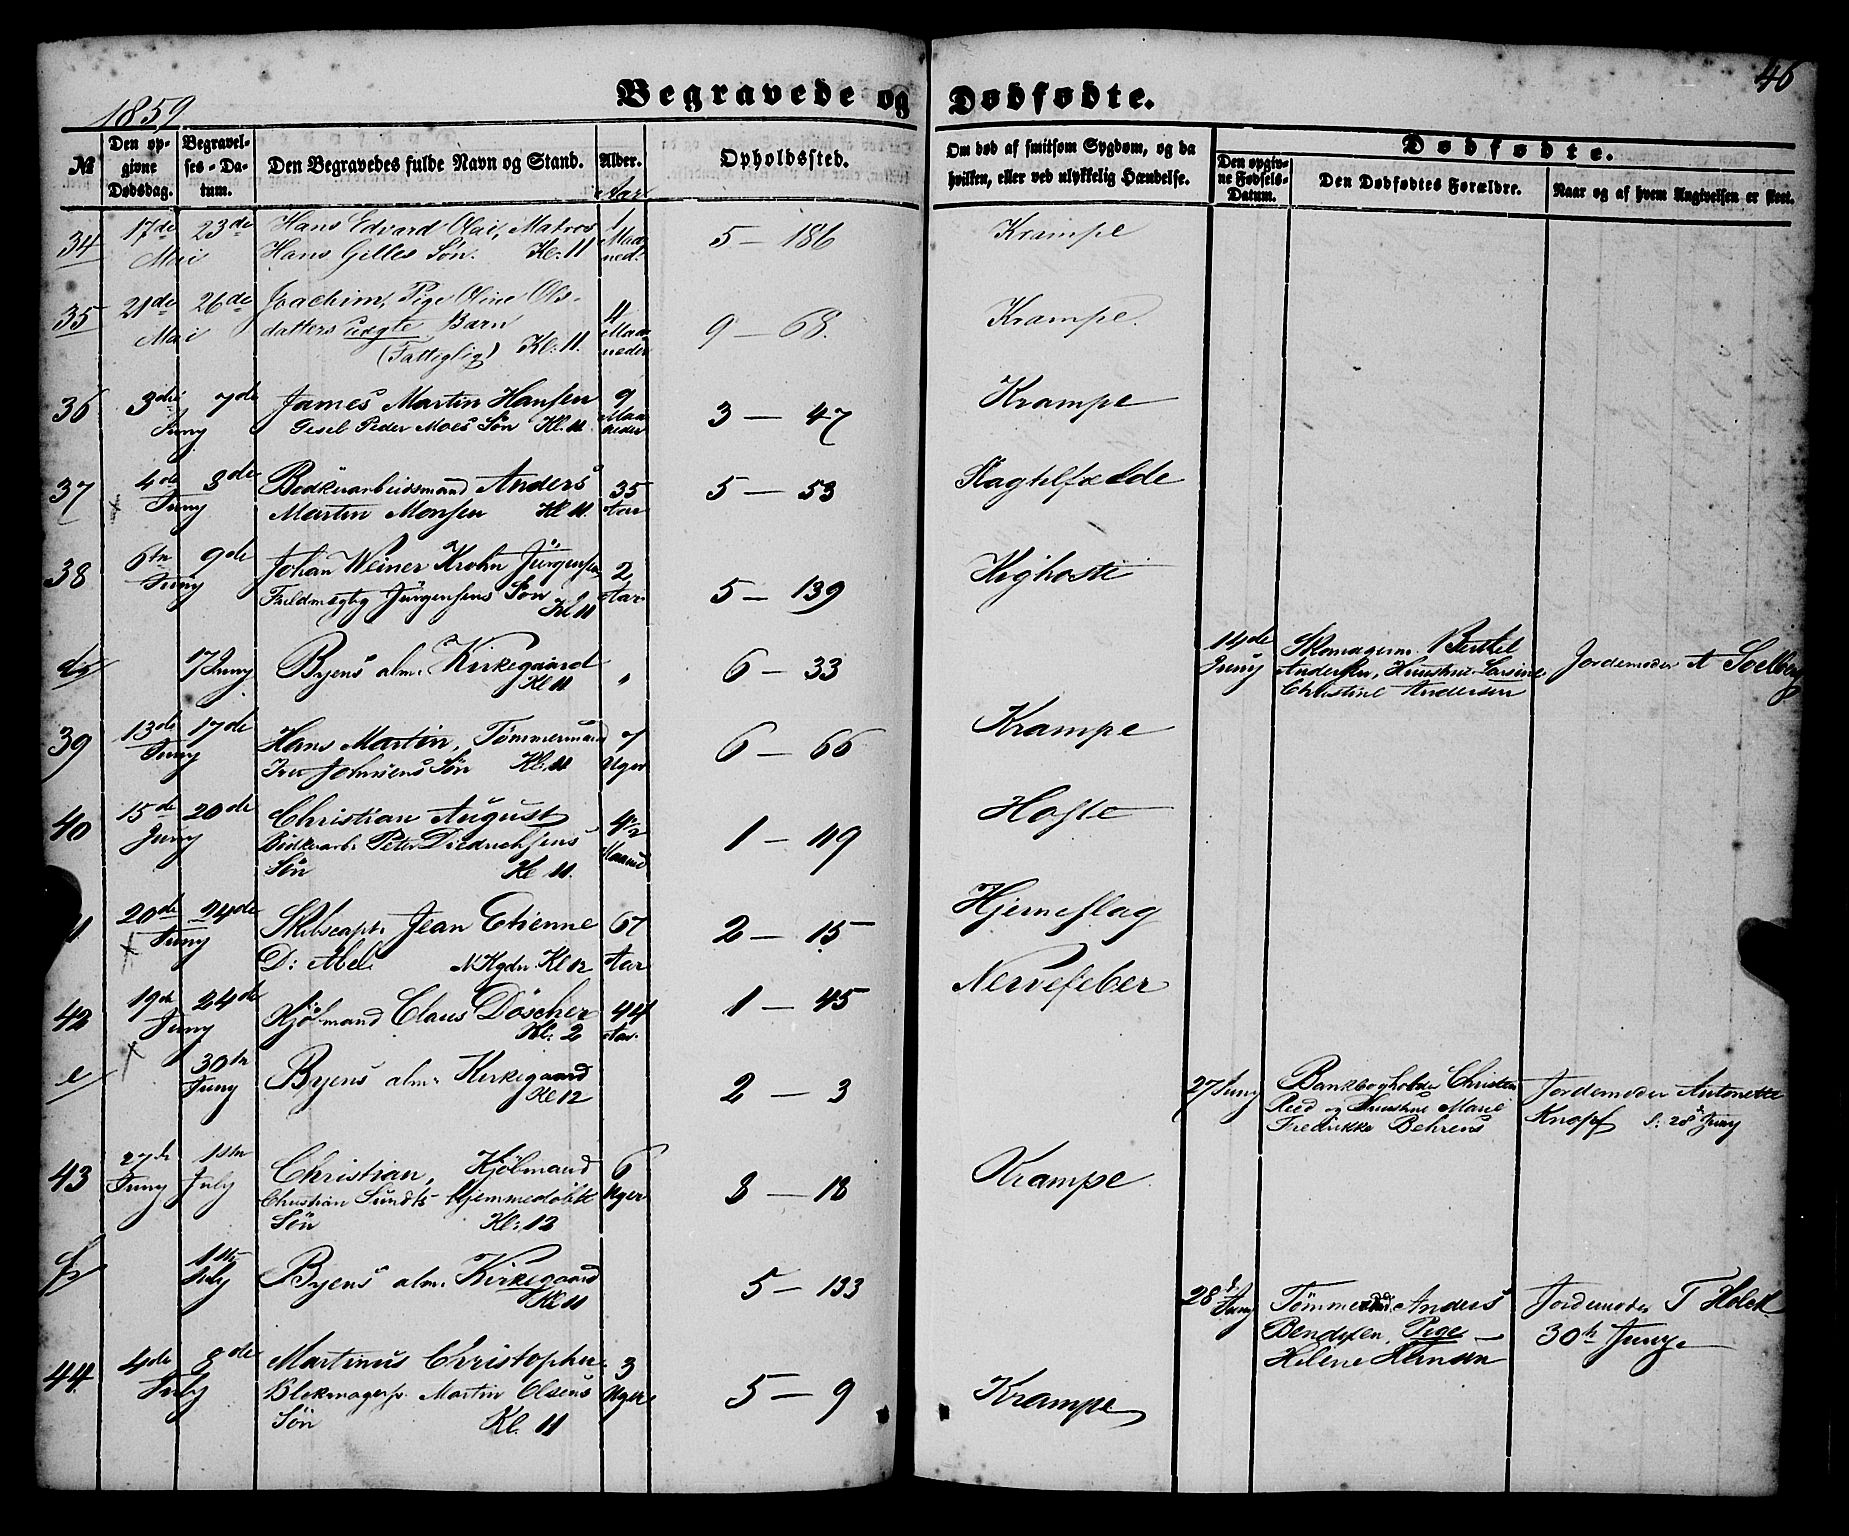 46
1859
Begravede og Dødfødte.
№
Den opgivne Dødsdag.
Begravelses-Datum.
Den Begravedes fulde Navn og Stand.
Alder.
Aar
Opholdssted.
Om død af smitsom Sygdom, og da hvilken, eller ved ulykkelig Hændelse.
Dødfødte.
Den opgivne Fødsels-Datum.
Den Dødfødtes Forældre.
Naar og af hvem Angivelsen er skeet.
34 17de Mai 23de Hans Edvard Olai, Matros 1 Maaned 5 - 186 Krampe
Hans Gilles Søn. Kl: 11
35 21de Mai 26de Joachim, Pige Oline Ols- 4 Maaneder 9 - 68. Krampe.
datters uægte Barn
(Fattiglig) Kl: 11.
36 3die Juny 7de James Martin Hansen 9 Maaneder 3 - 47 Krampe
Gesel Peder Moes Søn Kl. 11.
37 4de Juny 8de Bødkerarbeidsmand Anders 35 Aar 5 - 53
Martin Monsen Kl 11.
38 6te Juny 9de Johan Weiner Krohn Jürgensen 2 Aar 5 - 139 Kighoste
Fuldmægtig Jürgensens Søn
Kl 11
d/ 17 Juny Byens alm. Kirkegaard " 6 - 33 14de Juny Skomagerm. Bertel Jordemoder A Soelberg
Kl 11 Andersen, Hustrue Larsine
Christine Andersen
39 13de Juny 17de Hans Martin, Tømmermand 7 Uger 6 - 66 Krampe
Johnsens Søn Kl. 11
40 15de Juny 20de Christian August 4 1/2 Maaned 1 - 119 Hoste
Bødkerarb. Peter Diedrichsens
Søn Kl 11.
20de Juny 24de Skibscapt. Jean Etienne 67 Aar 2 - 15 Hjerneslag
D: Abel. N Kgdn. Kl 12
42 19de Juny 24de Kjøbmand Claus Döscher 44 Aar. 1 - 45 Nervefeber
Kl: 2
e/ 30te Juny Byens alm. Kirkegaard 2 - 3 27 Juny Bankbogholder Christen Jordemoder Antonette
Kl 12 Reed og Hustrue Marie Knopf d: 28 Juny
Fredrikke Behrens
43 27de Juny 1ste July Christian, Kjöbmand 6 Uger 3 - 18 Krampe
Christian Sundts hjemmedøbte
Søn Kl: 12
f/ 1ste July Byens alm. Kirkegaard 5 - 133 28 Juny Tömmermd. Anders Jordemoder T Holck
Kl 11 Bendixen, Pige - 30te Juny.
Helene Hansen
44. 4de July 8de Martinus Christopher 3 Uger 5 - 9 Krampe
Blokmagersv. Martin Olsens
Søn Kl. 11